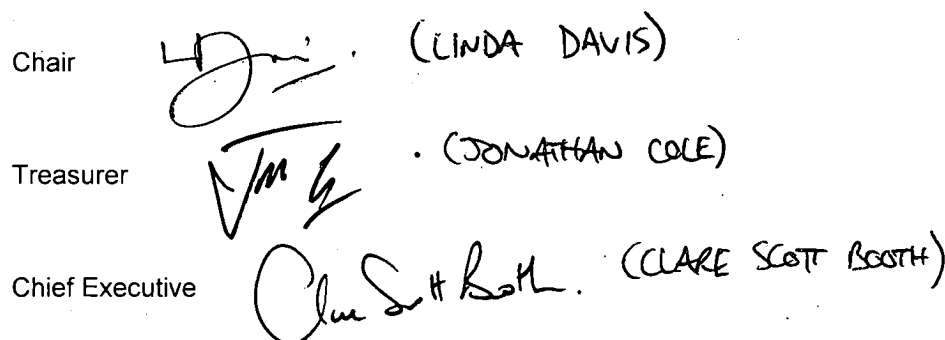 Chair (LINDA DAVIS)
Treasurer . (JONATHAN COLE)
Chief Executive Clare Scott Booth. (CLARE SCOTT BOOTH)